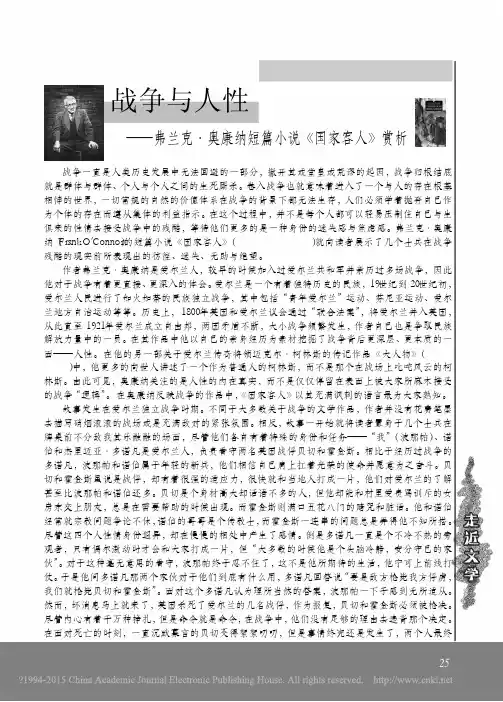 战争与人性
——弗兰克·奥康纳短篇小说《国家客人》赏析
战争一直是人类历史发展中无法回避的一部分，撇开其或堂皇或荒谬的起因，战争归根结底
就是群体与群体、个人与个人之间的生死厮杀。卷入战争也就意味着进入了一个与人的存在根基
相悖的世界，一切常规的自然的价值体系在战争的背景下都无法生存，人们必须学着抛弃自己作
为个体的存在而遵从集体的利益指示。在这个过程中，并不是每个人都可以轻易压制住自己与生
俱来的性情去接受战争中的残酷，等待他们更多的是一种身份的迷失感与焦虑感。弗兰克·奥康
纳（Frank O'Connor）的短篇小说《国家客人》( )就向读者展示了几个士兵在战争
残酷的现实前所表现出的彷徨、迷失、无助与绝望。
作者弗兰克·奥康纳是爱尔兰人，较早的时候加入过爱尔兰共和军并亲历过多场战争，因此
他对于战争有着更直接、更深入的体会。爱尔兰是一个有着独特历史的民族，19世纪到20世纪初，
爱尔兰人民进行了如火如荼的民族独立战争，其中包括“青年爱尔兰”运动、芬尼亚运动、爱尔
兰地方自治运动等等。历史上，1800年英国和爱尔兰议会通过“联合法案”，将爱尔兰并入英国，
从此直至1921年爱尔兰成立自由邦，两国矛盾不断，大小战争频繁发生，作者自己也是争取民族
解放力量中的一员。在其作品中他以自己的亲身经历为素材挖掘了战争背后更深层、更本质的一
面——人性。在他的另一部关于爱尔兰传奇将领迈克尔·柯林斯的传记作品《大人物》(
)中，他更多的向世人讲述了一个作为普通人的柯林斯，而不是那个在战场上叱咤风云的柯
林斯。由此可见，奥康纳关注的是人性的内在真实，而不是仅仅停留在表面上被大家所麻木接受
的战争“逻辑”。在奥康纳反映战争的作品中，《国家客人》以其充满讽刺的语言最为大家熟知。
故事发生在爱尔兰独立战争时期。不同于大多数关于战争的文学作品，作者并没有花费笔墨
去描写硝烟滚滚的战场或是充满敌对的紧张氛围。相反，故事一开始就将读者置身于几个士兵在
牌桌前不分敌我其乐融融的场面，尽管他们各自有着特殊的身份和任务——“我”（波那帕）、诺
伯和杰里迈亚·多诺凡是爱尔兰人，负责看守两名英国战俘贝切和霍金斯。相比于经历过战争的
多诺凡，波那帕和诺伯属于年轻的新兵，他们相信自己肩上扛着光荣的使命并愿意为之奋斗。贝
切和霍金斯虽说是战俘，却有着很强的适应力，很快就和当地人打成一片，他们对爱尔兰的了解
甚至比波那帕和诺伯还多。贝切是个身材高大却话语不多的人，但他却能和村里爱责骂训斥的女
房东交上朋友，总是在需要帮助的时候出现。而霍金斯则满口五花八门的赌咒和脏话。他和诺伯
经常就宗教问题争论不休，诺伯的哥哥是个传教士，而霍金斯一连串的问题总是弄得他不知所措。
尽管这四个人性情身份迥异，却在慢慢的相处中产生了感情。倒是多诺凡一直是个不冷不热的旁
观者，只有偶尔激动时才会和大家打成一片，但“大多数的时候他是个头脑冷酷，安分守己的家
伙”。对于这种毫无意思的看守，波那帕终于忍不住了，这不是他所期待的生活，他宁可上前线打
仗。于是他问多诺凡那两个家伙对于他们到底有什么用，多诺凡回答说“要是敌方枪毙我方俘虏，
我们就枪毙贝切和霍金斯”。面对这个多诺凡认为理所当然的答案，波那帕一下子感到无所适从。
然而，坏消息马上就来了，英国杀死了爱尔兰的几名战俘，作为报复，贝切和霍金斯必须被枪决。
尽管内心有着千万种挣扎，但是命令就是命令，在战争中，他们没有足够的理由去违背那个决定。
在面对死亡的时刻，一直沉默寡言的贝切变得絮絮叨叨，但是事情终究还是发生了，两个人最终
走近文学
25
?1994-2015 China Academic Journal Electronic Publishing House. All rights reserved. http://www.cnki.net